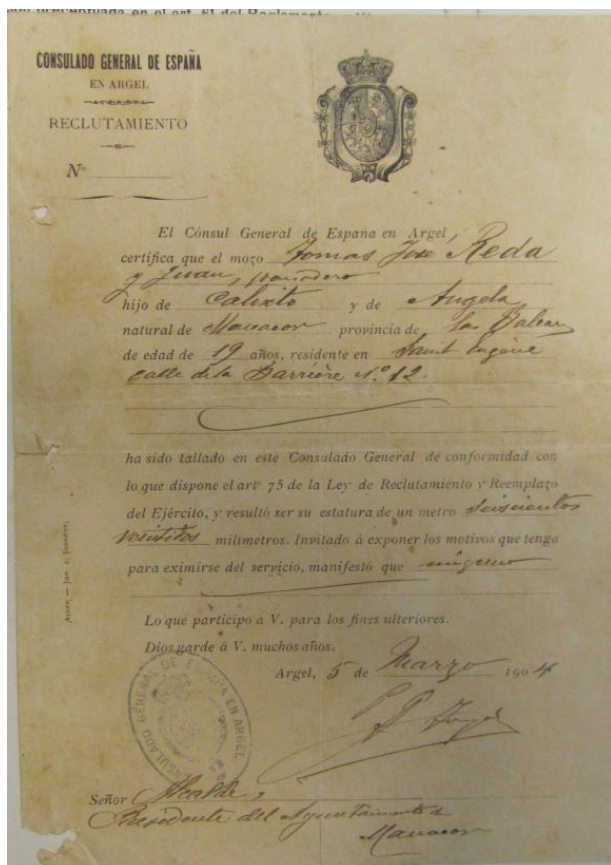 CONSULADO GENERAL DE ESPAÑA
EN ARGEL
RECLUTAMIENTO
Nº
El Cónsul General de España en Argel,
certifica que el mozo Tomas José Reda
y Juan, panadero
hijo de Calixto y de Angela
natural de Manacor provincia de las Balear
de edad de 19 años, residente en Saint Eugène
calle de la Barrière Nº 12.
ha sido tallado en este Consulado General de conformidad con
lo que dispone el artº 75 de la Ley de Reclutamiento y Reemplazo
del Ejército, y resultó ser su estatura de un metro seiscientos
veintidos milímetros. Invitado á exponer los motivos que tenga
para eximirse del servicio, manifestó que ninguno
Lo que participo á V. para los fines ulteriores.
Dios garde á V. muchos años.
Argel, 5 de Marzo 1904
CONSULADO GENERAL DE ESPAÑA EN ARGEL
Señor Alcalde,
Presidente del Ayuntamiento de
Manacor